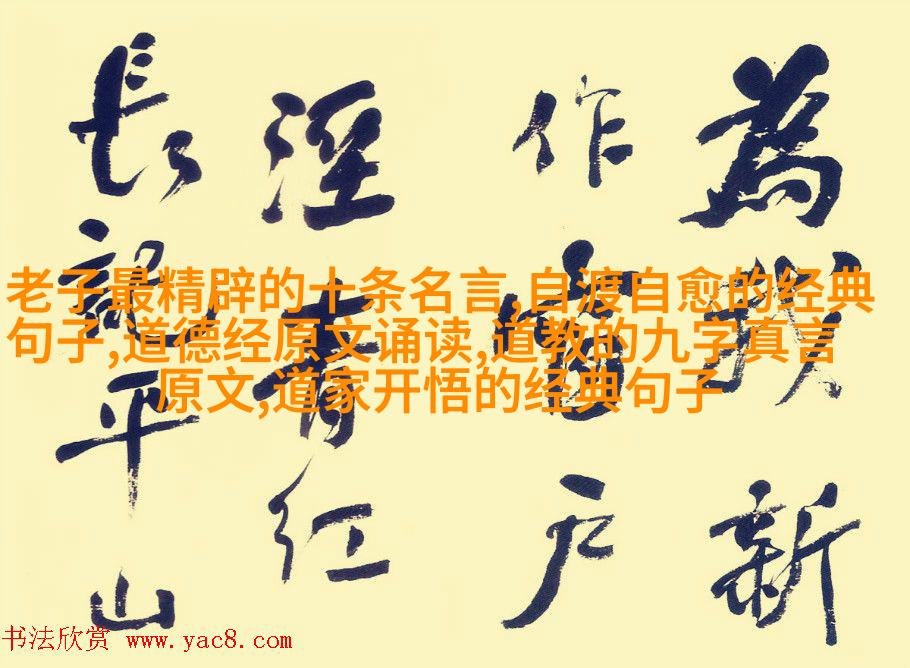 為我新
作窗户
溼青红
長記平山
老子最精辟的十条名言,自渡自愈的经典
句子,道德经原文诵读,道教的九字真言
原文,道家开悟的经典句子
书法欣赏 www.yac8.com